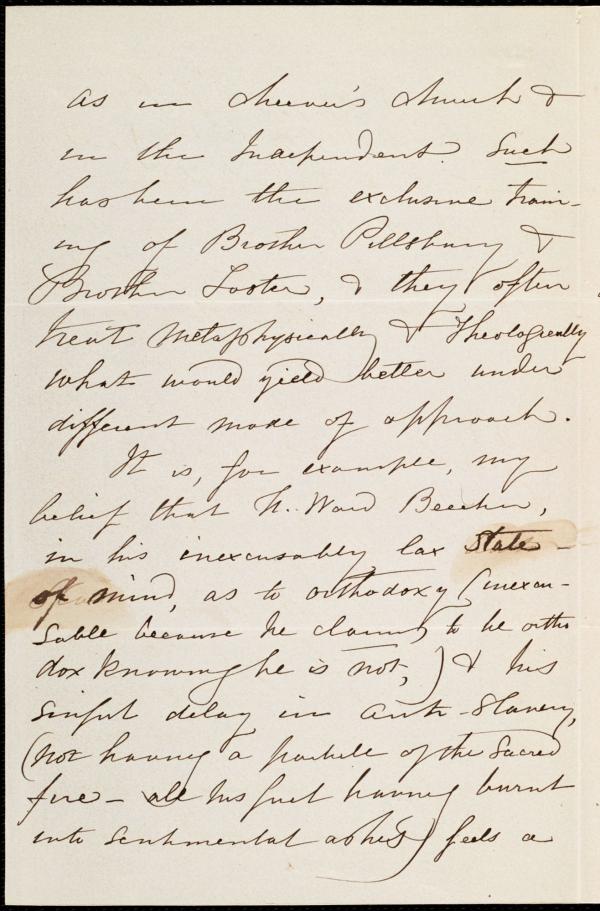 as in Cheever's Church &
in the Independent. Such
has been the exclusive train-
ing of Brother Pillsbury &
Brother Foster, & they often
treat metaphysically & Theologically
what would yield better under
different mode of approach.
It is, for example, my
belief that H. Ward Beecher,
in his inexcusably lax state
of mind, as to orthodoxy (inexcu-
sable because he claims to be ortho
dox knowing he is not,) & his
sinful delay in Anti-Slavery,
(not having a particle of the sacred
fire – all his fuel having burnt
into sentimental ashes) feels a